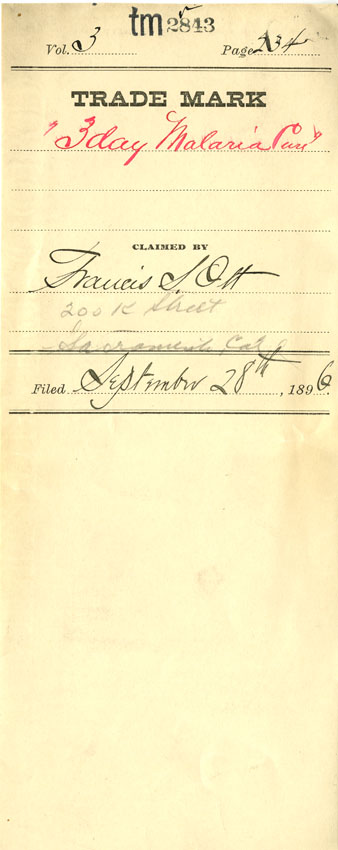 tm 2843
Vol. 3 Page 234
TRADE MARK
"3 day Malaria Cure"
CLAIMED BY
Francis S. Ott
200 K Street
Sacramento, Cal
Filed September 28th, 1896.